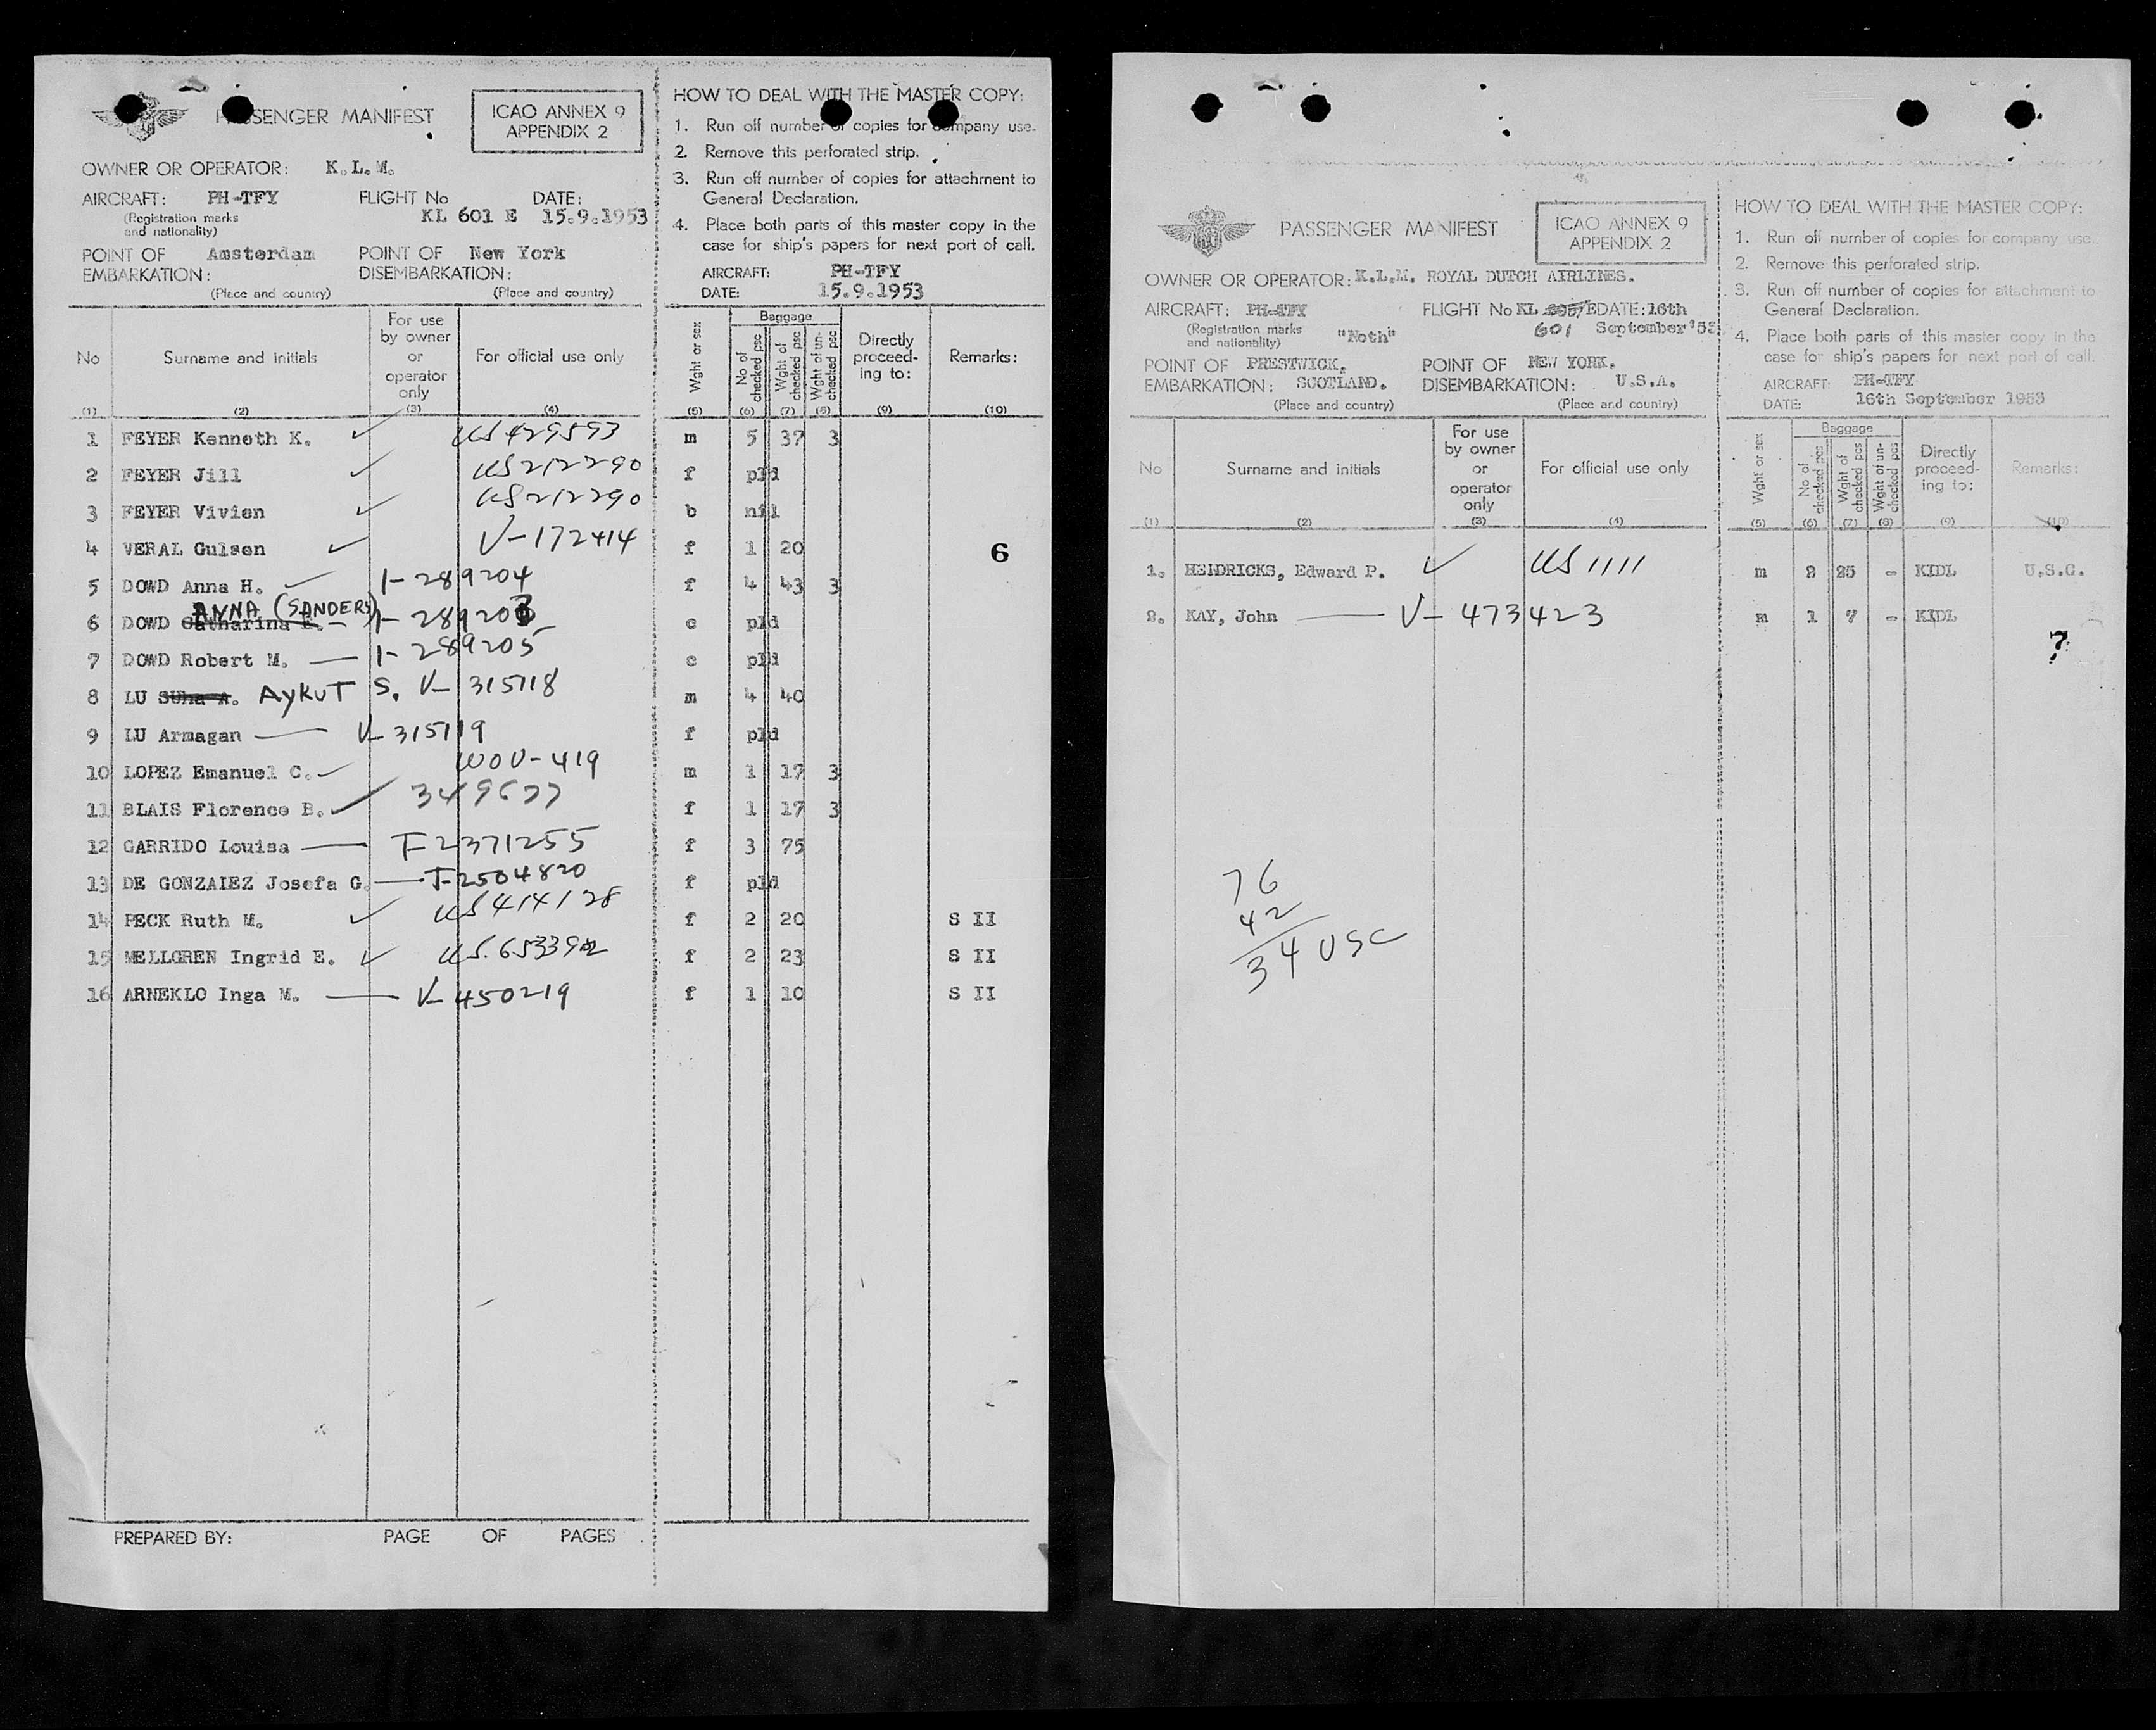 PASSENGER MANIFEST
ICAO ANNEX 9
APPENDIX 2
OWNER OR OPERATOR: K.L.M.
AIRCRAFT: PH-TFY FLIGHT No KL 601 E DATE: 15.9.1953
(Registration marks
and nationality)
POINT OF Amsterdam POINT OF New York
EMBARKATION: DISEMBARKATION:
(Place and country) (Place and country)
HOW TO DEAL WITH THE MASTER COPY:
1. Run off number of copies for company use.
2. Remove this perforated strip.
3. Run off number of copies for attachment to
General Declaration.
4. Place both parts of this master copy in the
case for ship's papers for next port of call.
AIRCRAFT: PH-TFY
DATE: 15.9.1953
No Surname and initials For use by owner or operator only For official use only Wght or sex Baggage No of checked pcs Wght of checked pcs Wght of un-checked pcs Directly proceed-ing to: Remarks:
(1) (2) (3) (4) (5) (6) (7) (8) (9) (10)
1 FEYER Kenneth K. US 429593 m 5 37 3
2 FEYER Jill US 212290 f pld
3 FEYER Vivien US 212290 b nil
4 VERAL Gulsen V-172414 f 1 20
6
5 DOWD Anna H. I-289204 f 4 43 3
ANNA (SANDERS)
6 DOWD Catharina I-289203 c pld
7 DOWD Robert M. I-289205 c pld
8 LU Suha A. AYKUT S. V-315118 m 4 40
9 LU Armagan V-315119 f pld
10 LOPEZ Emanuel C. WOV-419 m 1 17 3
11 BLAIS Florence B. 349677 f 1 17 3
12 GARRIDO Louisa T-2371255 f 3 75
13 DE GONZALEZ Josefa G. T-2504820 f pld
14 PECK Ruth M. US 414128 f 2 20 S II
15 MELLGREN Ingrid E. f 2 23 S II
16 ARNEKLO Inga M. V-450219 f 1 10 S II
PREPARED BY: PAGE OF PAGES
PASSENGER MANIFEST
ICAO ANNEX 9
APPENDIX 2
OWNER OR OPERATOR: K.L.M. ROYAL DUTCH AIRLINES.
AIRCRAFT: PH-TFY FLIGHT No KL E DATE: 16th
(Registration marks
and nationality) "Noth" 601 September '53
POINT OF PRESTWICK. POINT OF NEW YORK.
EMBARKATION: SCOTLAND. DISEMBARKATION: U.S.A.
(Place and country) (Place and country)
HOW TO DEAL WITH THE MASTER COPY:
1. Run off number of copies for company use.
2. Remove this perforated strip.
3. Run off number of copies for attachment to
General Declaration.
4. Place both parts of this master copy in the
case for ship's papers for next port of call.
AIRCRAFT: PH-TFY
DATE: 16th September 1953
No Surname and initials For use by owner or operator only For official use only Wght or sex Baggage No of checked pcs Wght of checked pcs Wght of un-checked pcs Directly proceed-ing to: Remarks:
(1) (2) (3) (4) (5) (6) (7) (8) (9) (10)
1. HENDRICKS, Edward P. US 1111 m 2 25 - KIDL U.S.G.
2. KAY, John V-473423 m 1 7 - KIDL
7
76
42
34 USC